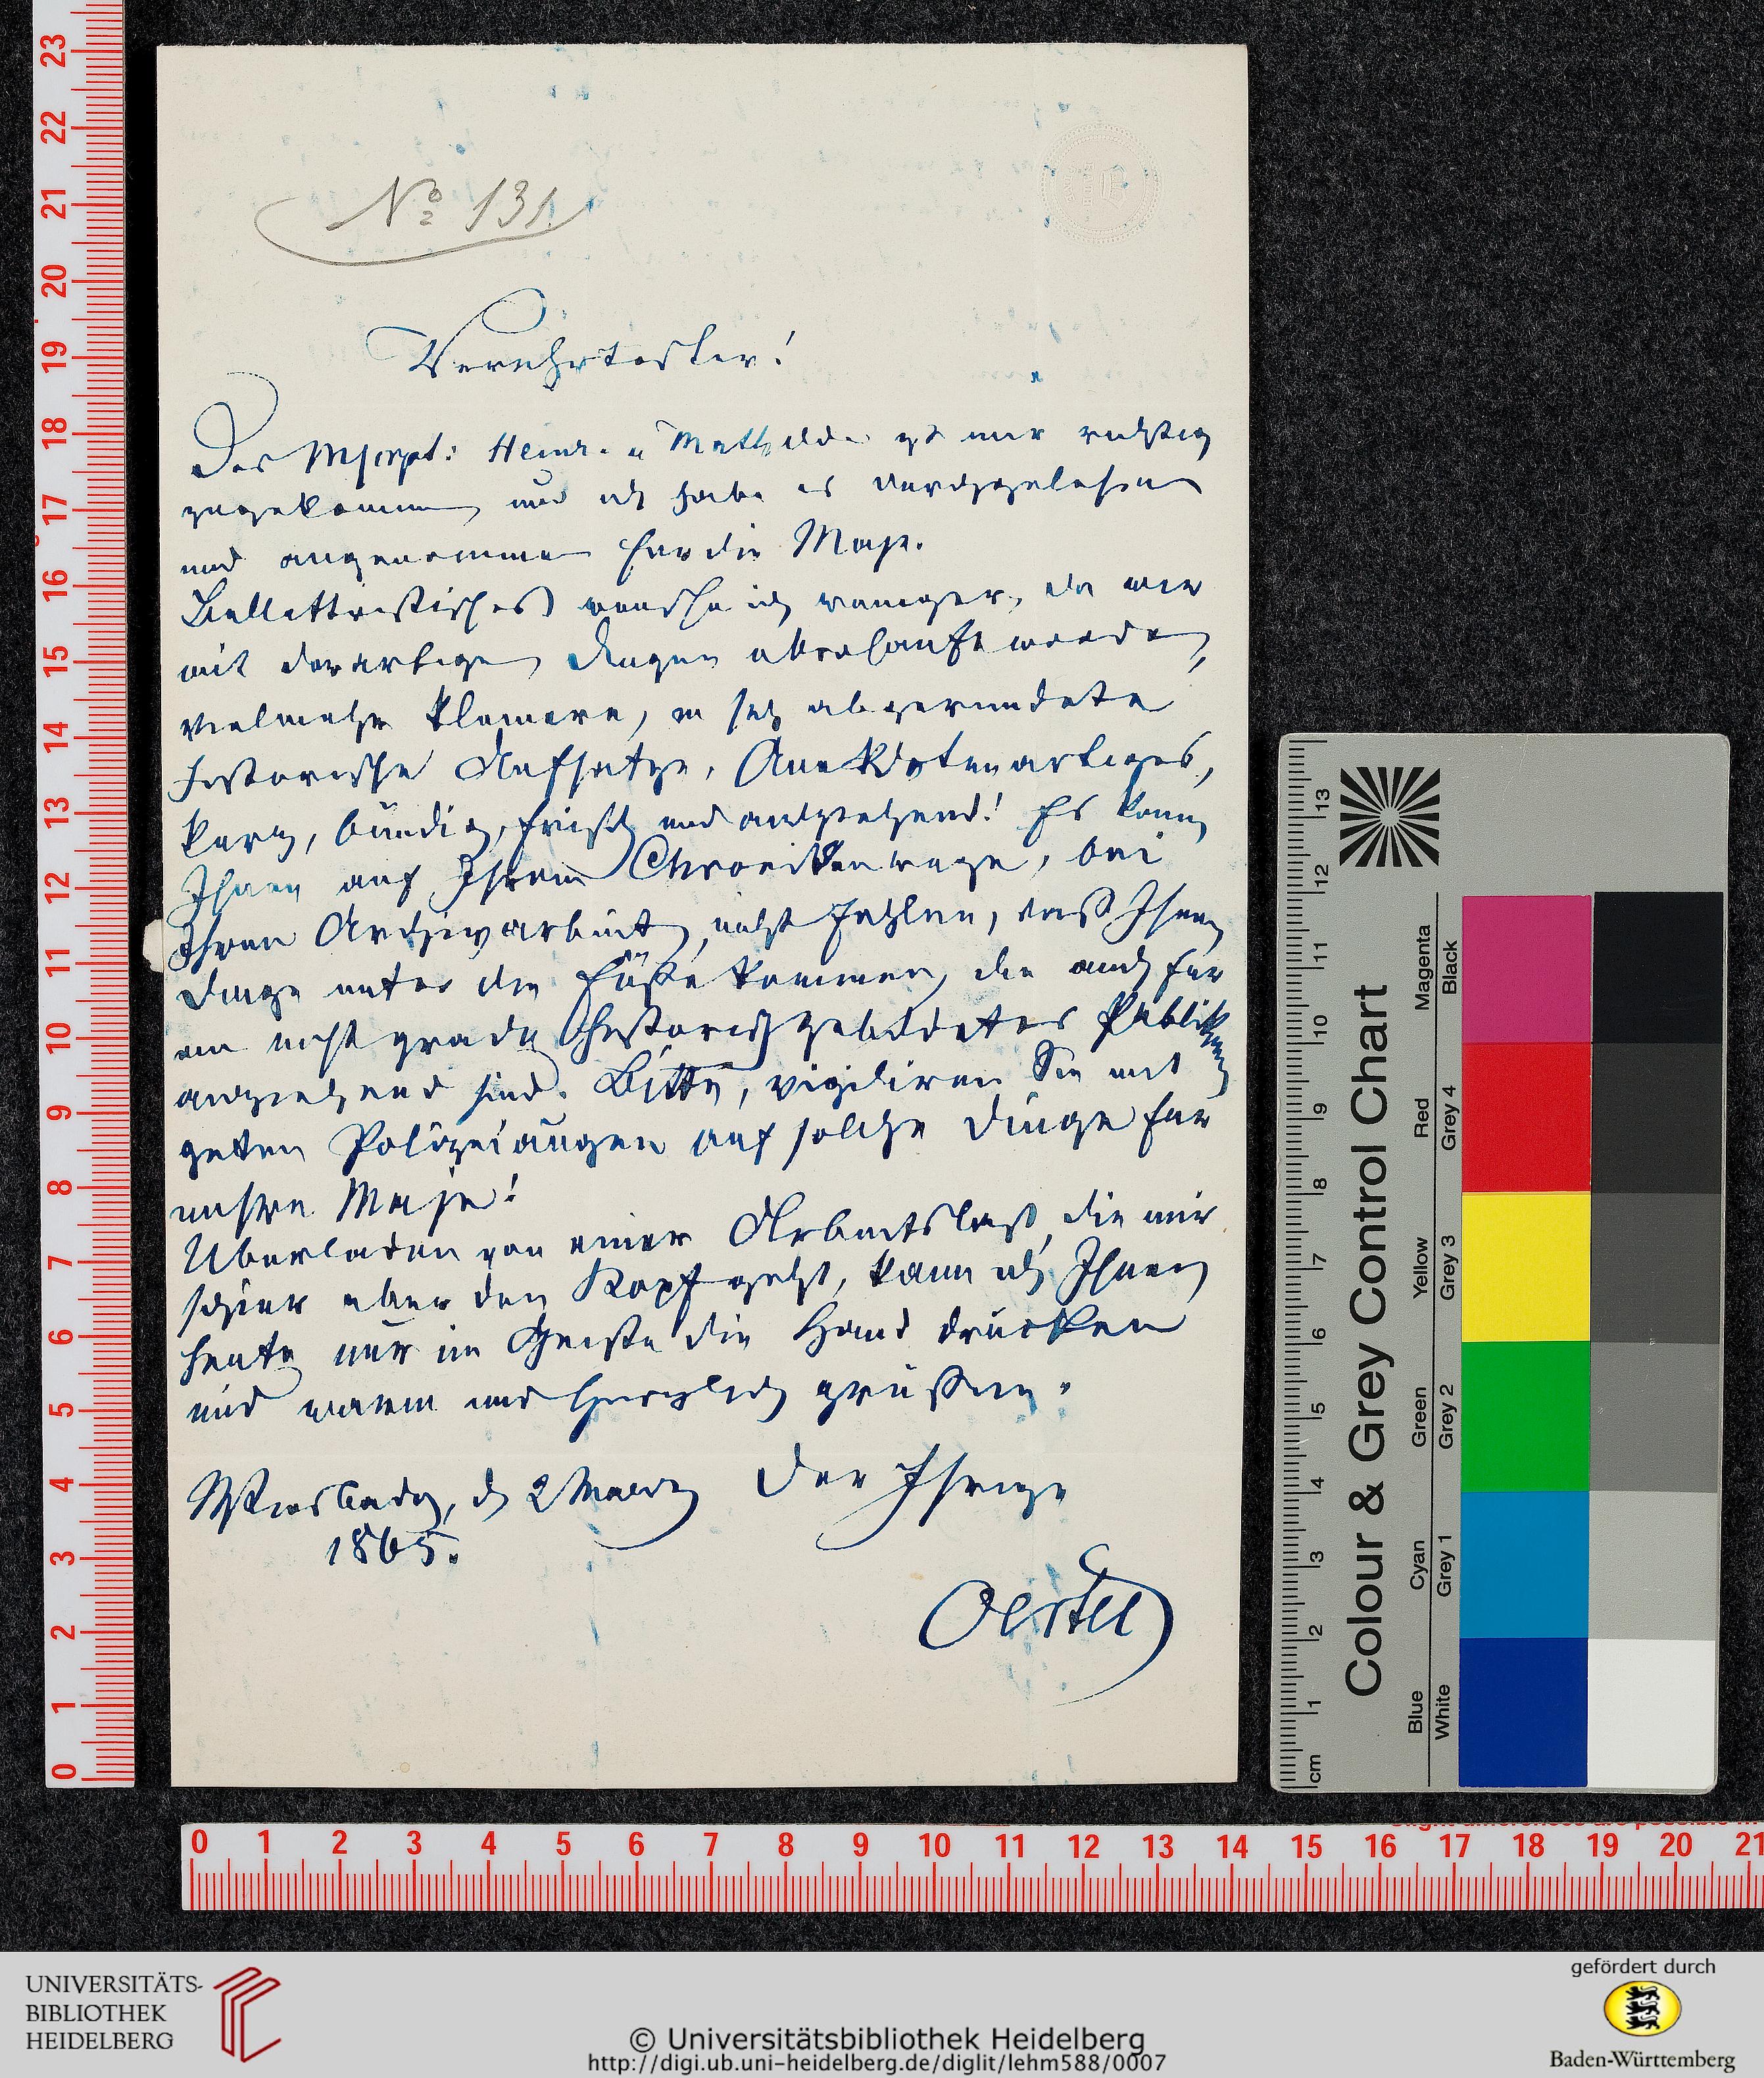 No 131.
Verehrtester!
Das Mscrpt: Heinr. u Mathilde ist mir richtig
zugekommen, und ich habe es durchgelesen
und angenommen für die Maje.
Bellettristisches wünsche ich weniger, da wir
mit derartigen Dingen überhäuft werden,
vielmehr kleinere, in sich abgerundete
historische Aufsätze, Anekdotenartiges,
kurz, bündig, frisch und anziehend! Es kann
Ihnen auf Ihrem Chronikenwege, bei
Ihren Archivarbeiten, nicht fehlen, daß Ihnen
Dinge unter die Füße kommen, die auch für
ein nicht grade historisch gebildetes Publikum
anziehend sind. Bitte, vigiliren Sie mit
guten Polizeiaugen auf solche Dinge für
unsre Maje!
Überladen von einer Arbeitslast, die mir
schier über den Kopf geht, kann ich Ihnen
heute nur im Geiste die Hand drücken
und warm und herzlich grüßen.
Wiesbaden, d 2 März Der Ihrige
1865.
Oertel
23
22
21
20
19
18
17
16
15
14
13
12
11
10
9
8
7
6
5
4
3
2
1
0
Colour & Grey Control Chart
Magenta Black
Red Grey 4
Yellow Grey 3
Green Grey 2
Cyan Grey 1
Blue White
13
12
11
10
9
8
7
6
5
4
3
2
1
cm
0 1 2 3 4 5 6 7 8 9 10 11 12 13 14 15 16 17 18 19 20 21
UNIVERSITÄTS-
BIBLIOTHEK
HEIDELBERG
© Universitätsbibliothek Heidelberg
http://digi.ub.uni-heidelberg.de/diglit/lehm588/0007
gefördert durch
Baden-Württemberg